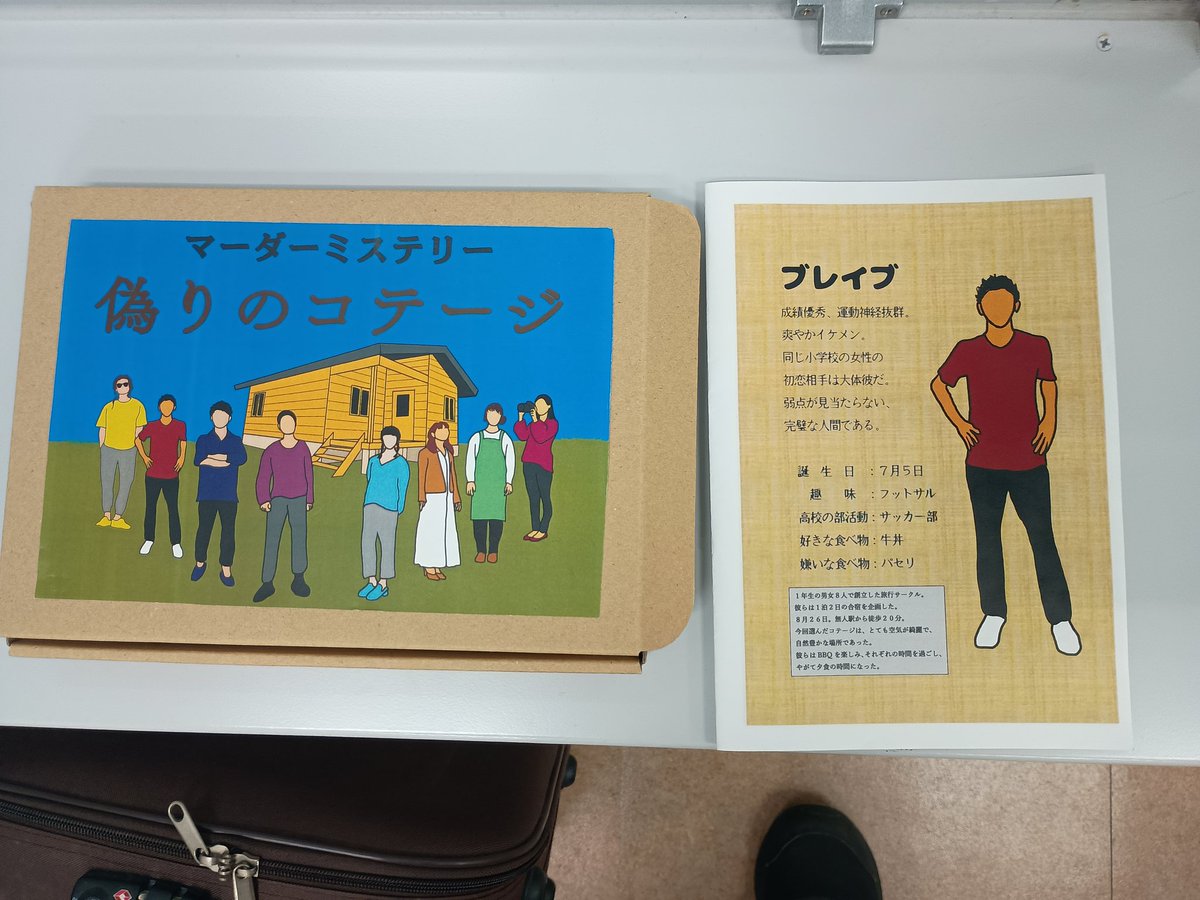 マーダーミステリー
偽りのコテージ
ブレイブ
成績優秀、運動神経抜群。
爽やかイケメン。
同じ小学校の女性の
初恋相手は大体彼だ。
弱点が見当たらない、
完璧な人間である。
誕生日：7月5日
趣味：フットサル
高校の部活動：サッカー部
好きな食べ物：牛丼
嫌いな食べ物：パセリ
1年生の男女8人で創立した旅行サークル。
彼らは1泊2日の合宿を企画した。
8月26日。無人駅から徒歩20分。
今回選んだコテージは、とても空気が綺麗で、
自然豊かな場所であった。
彼らはBBQを楽しみ、それぞれの時間を過ごし、
やがて夕食の時間になった。